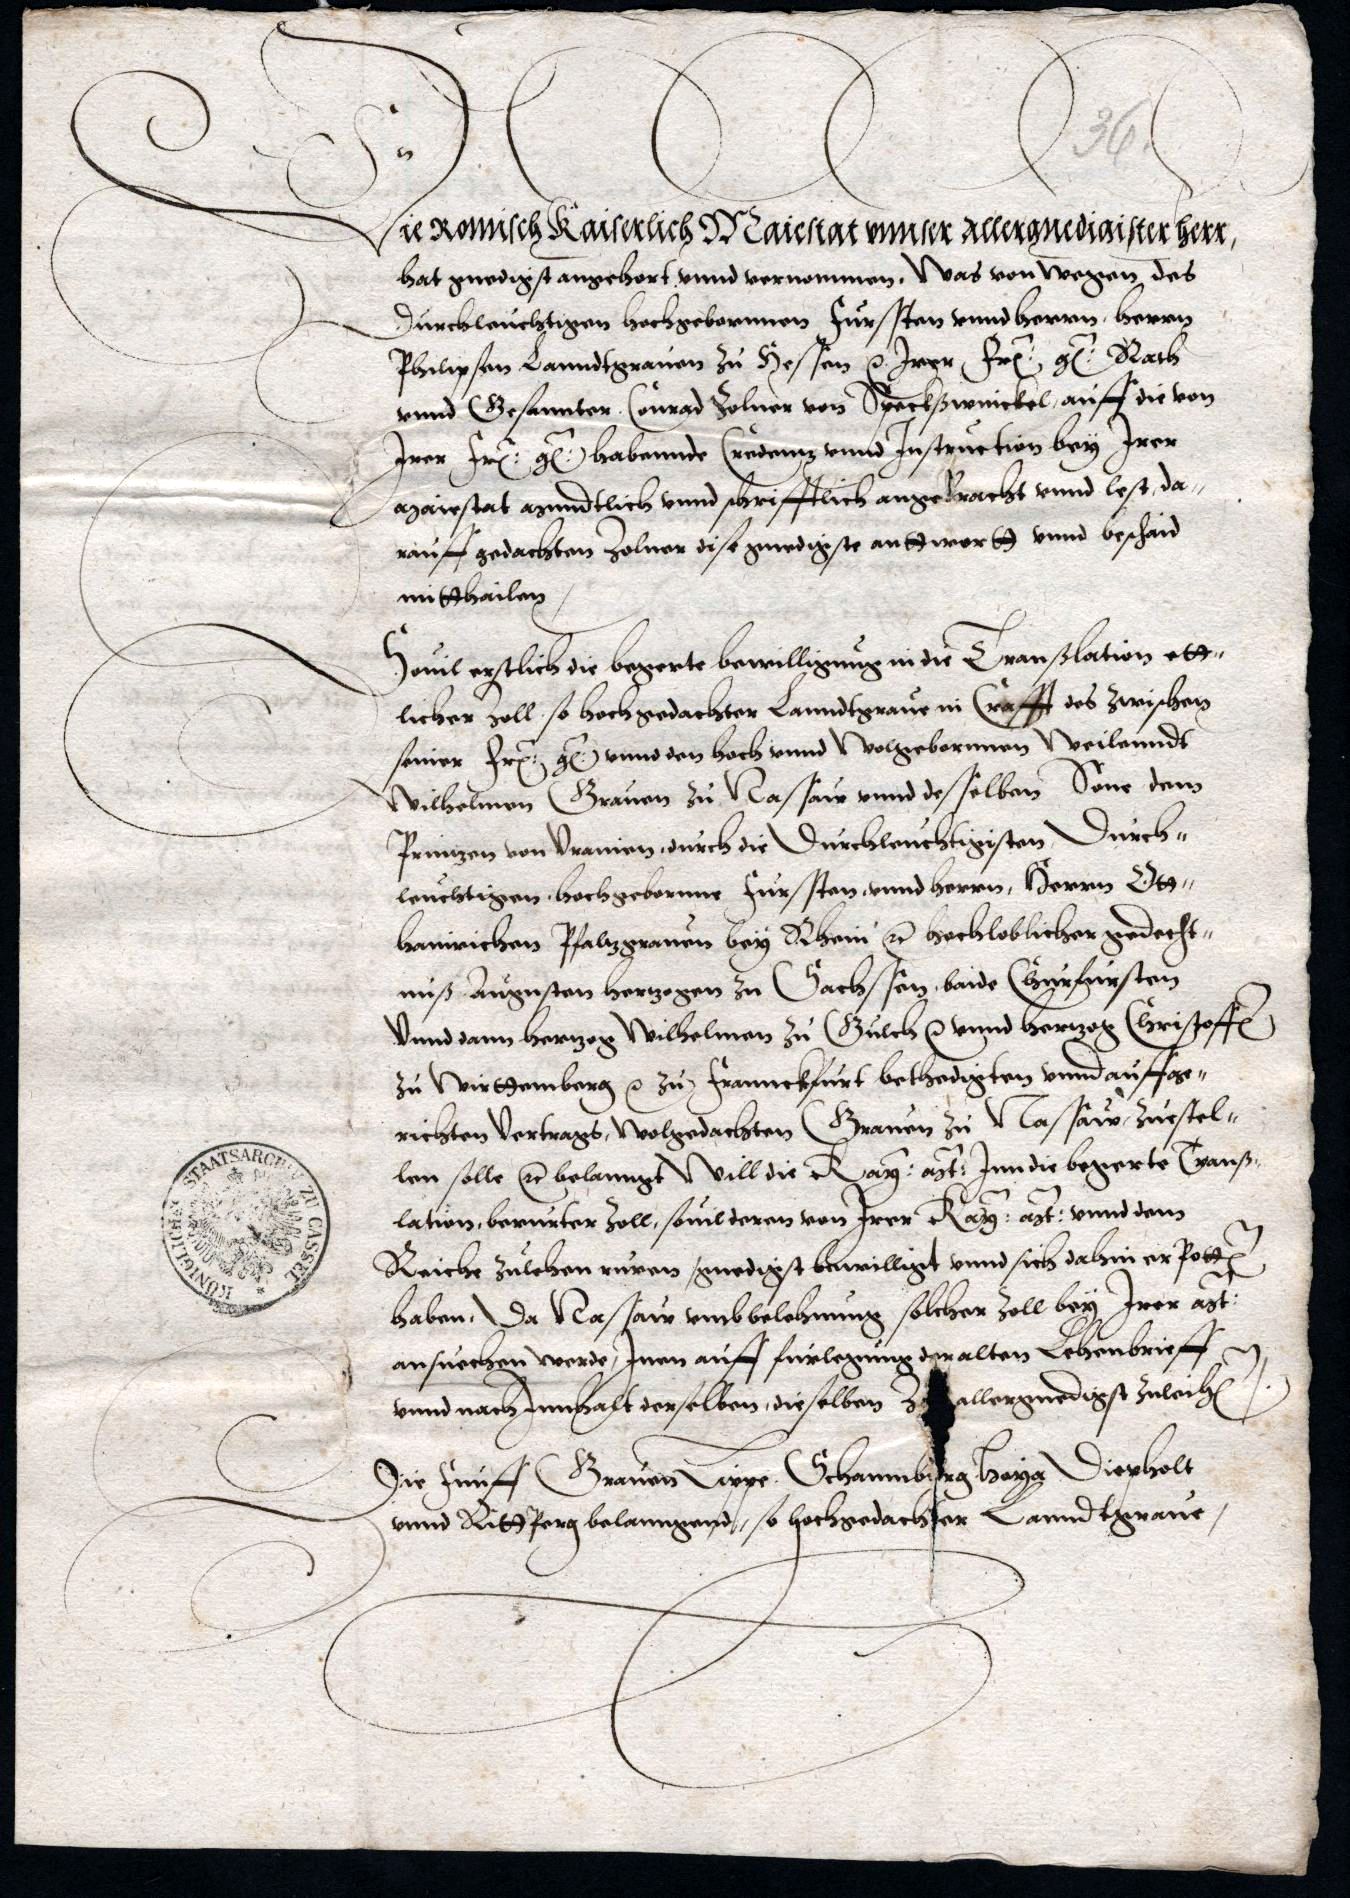 36.
Die Romisch Kaiserlich Maiestat vnnser Allergnedigister herr,
hat gnedigst angehort vnnd vernommen, Was von wegen des
durchleuchtigen hochgebornnen Fursten vnnd herrn, herrn
Philipsen Lanndtgrauen zu Hessen ꝛc Irer Frͤ: gͤ: Rath
vnnd Gesannter Conrad Zolner von Speckßwinckel, auff die von
Irer Frͤ: gͤ: habennde Credentz vnnd Instruction bey Irer
Maiestat mundtlich vnnd schrifftlich angebracht vnnd lest, da„
rauff gedachten Zolner dise gnedigste anttwortt vnnd beschaid
mitthailen,
Souil erstlich die begerte bewilligung in die Translation ett„
licher Zoll so hochgedachter Lanndtgraue in Crafft des zwischen
seiner Frͤ: gͤ: vnnd den hoch vnnd Wolgebornnen Weilenndt
Wilhelmen Grauen zu Nassaw vnnd desselben Sone dem
Printzen von Vranien, durch die Durchleuchtigisten, Durch„
leuchtigen, hochgebornne Fursten, vnnd herrn, Herrn Ott„
hainrichen Pfaltzgrauen bey Rhein ꝛc hochloblicher gedecht„
nuß Augusten hertzogen zu Sachssen, baide Churfursten
Vnnd dann hertzog Wilhelmen zu Gulch ꝛc vnnd hertzog Christoffen
zu Wirttemberg ꝛc zu Franckfurt bethedigten vnnd auffge„
richten Vertrags, Wolgedachten Grauen zu Nassaw, zuestel„
len solle ꝛc belanngt, Will die Kay: Mt: Inn die begerte Tranß„
lation, berurter Zoll, souil deren von Irer Kay: Mt: vnnd dem
Reiche zulehen ruren, gnedigst bewilligt vnnd sich dahin erpotten
haben, Da Nassaw vmb belehnung solcher Zoll bey Irer Mt:
ansuechen werde, Inen auff furlegung der alten Lehenbrieff
vnnd nach Innhalt derselben, dieselben Zoll allergnedigst zuleihen.
Die Funff Grauen Lippe, Schaumburg, Hoya, Diepholt
vnnd Rittperg belanngend, so hochgedachter Lanndtgraue,
KÖNIGLICHES STAATSARCHIV ZU CASSEL